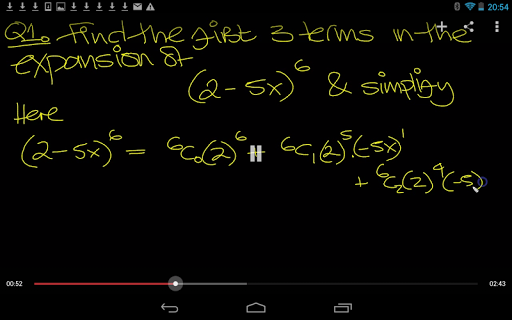 20:54
Q1. Find the first 3 terms in the
expansion of
(2 - 5x)⁶ & simplify
Here
(2 - 5x)⁶ = ⁶C₀(2)⁶ + ⁶C₁(2)⁵.(-5x)¹
+ ⁶C₂(2)⁴(-5)
00:52
02:43